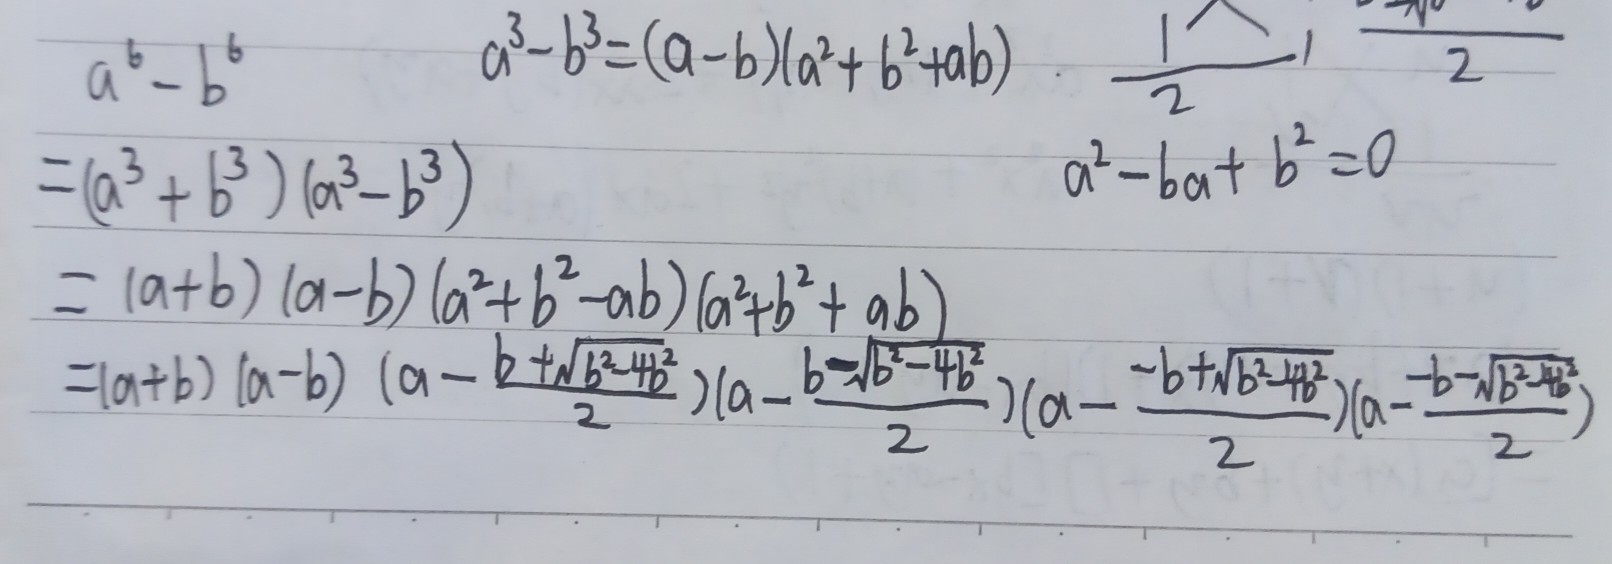 a⁶ - b⁶
a³ - b³ = (a-b)(a² + b² + ab)
1 1
2
2
a² - ba + b² = 0
= (a³ + b³)(a³ - b³)
= (a+b)(a-b)(a² + b² - ab)(a² + b² + ab)
= (a+b)(a-b)(a - \frac{b+\sqrt{b²-4b²}}{2})(a - \frac{b-\sqrt{b²-4b²}}{2})(a - \frac{-b+\sqrt{b²-4b²}}{2})(a - \frac{-b-\sqrt{b²-4b²}}{2})